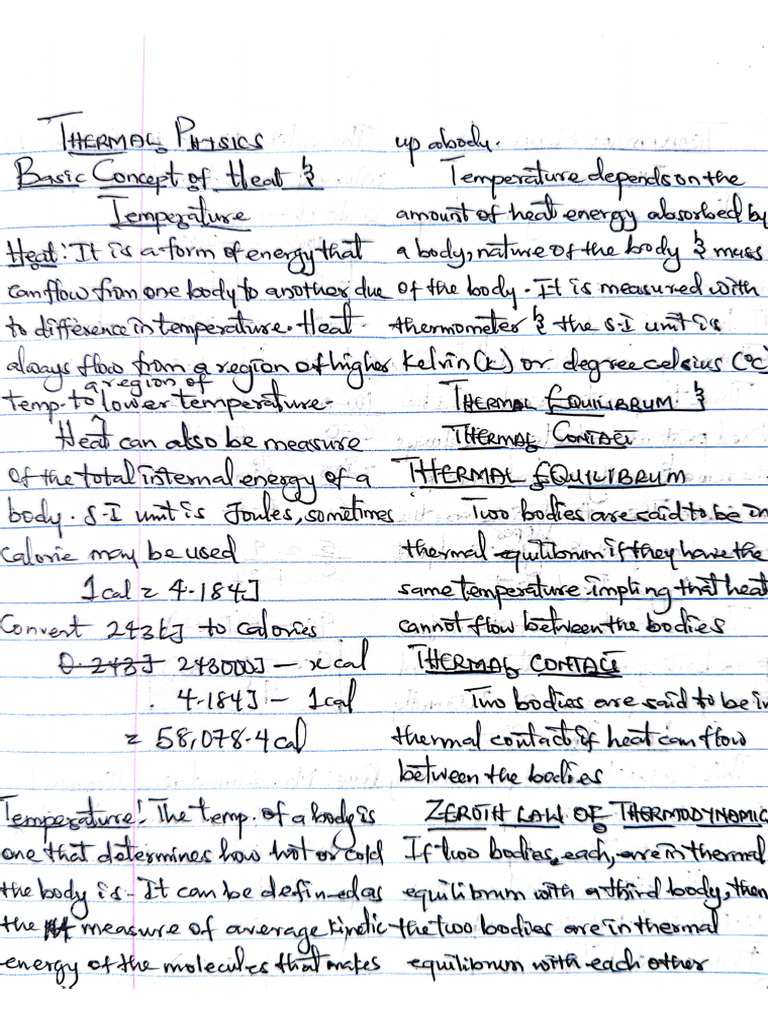 THERMAL PHYSICS
Basic Concept of Heat &
Temperature
Heat: It is a form of energy that
can flow from one body to another due
to difference in temperature. Heat
always flow from a region of higher
a region of
temp. to ^ lower temperature.
Heat can also be measure
of the total internal energy of a
body. S.I unit is Joules, sometimes
calorie may be used
1cal = 4.184J
Convert 243kJ to calories
0.243J 243000J — x cal
4.184J — 1cal
= 58,078.4 cal
Temperature: The temp. of a body is
one that determines how hot or cold
the body is. It can be defined as
the measure of average kinetic
energy of the molecules that makes
up a body.
Temperature depends on the
amount of heat energy absorbed by
a body, nature of the body & mass
of the body. It is measured with
thermometer & the S.I unit is
Kelvin (K) or degree celsius (°C)
THERMAL EQUILIBRUM &
THERMAL CONTACT
THERMAL EQUILIBRUM
Two bodies are said to be in
thermal equilibrum if they have the
same temperature impling that heat
cannot flow between the bodies
THERMAL CONTACT
Two bodies are said to be in
thermal contact if heat can flow
between the bodies
ZEROTH LAW OF THERMODYNAMIC
If two bodies, each, are in thermal
equilibrum with a third body, then
the two bodies are in thermal
equilibrum with each other